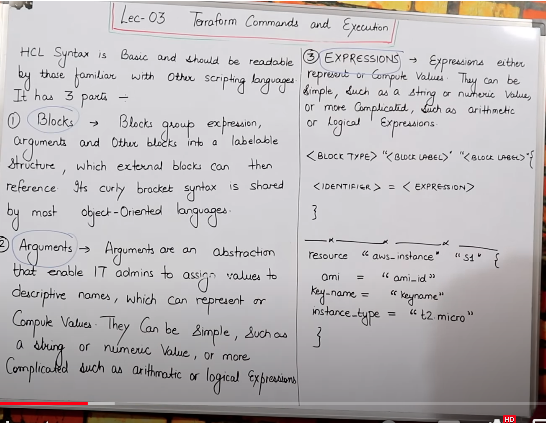 Lec-03 Terraform Commands and Execution
HCL Syntax is Basic and should be readable
by those familiar with Other scripting languages.
It has 3 parts —
① Blocks → Blocks group expression,
arguments and Other blocks into a labelable
structure, which external blocks can then
reference. Its curly bracket syntax is shared
by most object-Oriented languages.
2 Arguments → Arguments are an abstraction
that enable IT admins to assign values to
descriptive names, which can represent or
Compute Values. They Can be Simple, Such as
a string or numeric Value, or more
Complicated such as arithmatic or logical Expressions
③ EXPRESSIONS → Expressions either
represent or Compute Values. They can be
Simple, Such as a string or numeric Value,
or more Complicated, Such as arithmetic
or Logical Expressions.
<BLOCK TYPE> "<BLOCK LABEL>" "<BLOCK LABEL>" {
<IDENTIFIER> = <EXPRESSION>
}
resource "aws_instance" "S1" {
ami = "ami_id"
key_name = "keyname"
instance_type = "t2.micro"
}
HD